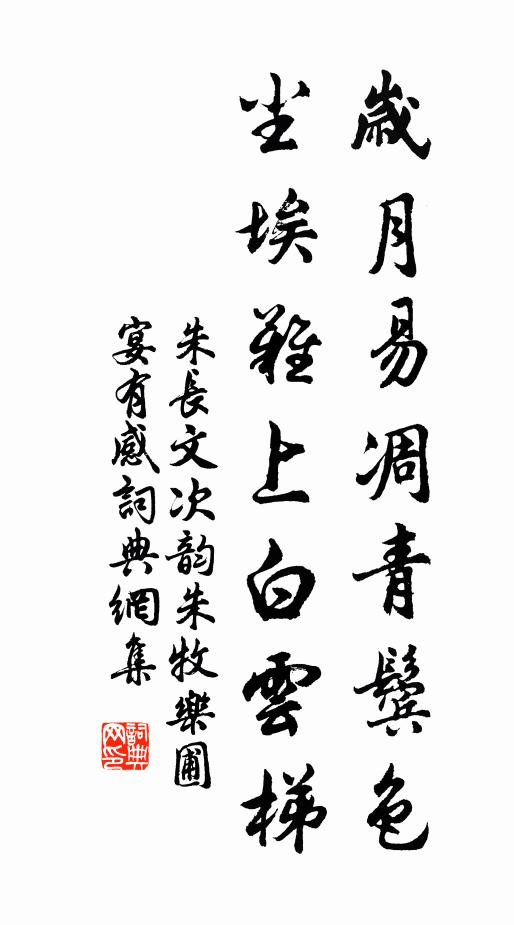 歲月易凋青鬢色
尘埃難上白雲梯
朱長文次韵朱牧樂圃
宴有感詞典網集
詞典
网印